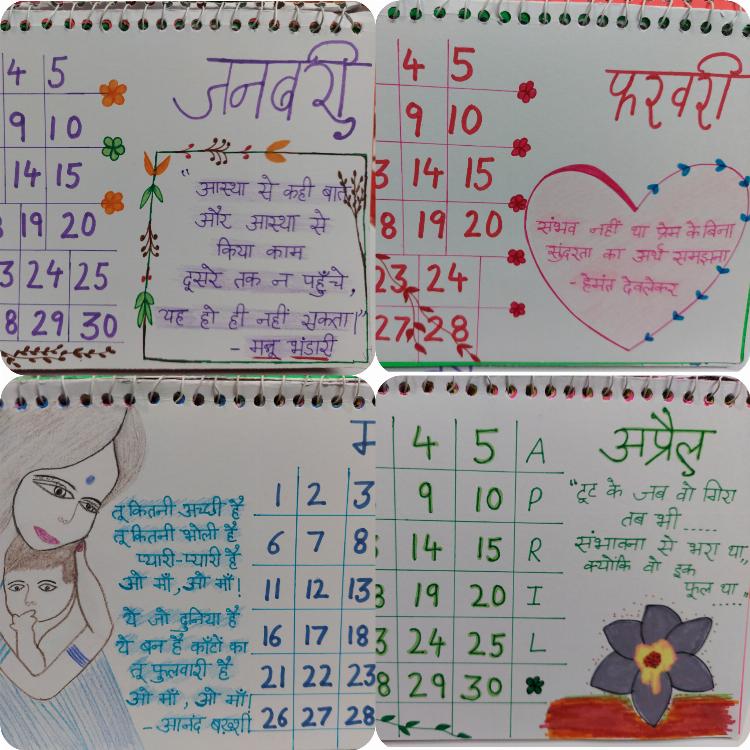 4 5
9 10
14 15
19 20
3 24 25
8 29 30
जनवरी
"आस्था से कही बात
और आस्था से
किया काम
दूसरे तक न पहुँचे,
यह हो ही नहीं सकता।"
- मन्नू भंडारी
4 5
9 10
3 14 15
8 19 20
23 24
27 28
फरवरी
संभव नहीं था प्रेम के बिना
सुंदरता का अर्थ समझना
- हेमंत देवलेकर
तू कितनी अच्छी है
तू कितनी भोली है
प्यारी-प्यारी है
ओ माँ, ओ माँ!
ये जो दुनिया है
ये बन है काँटों का
तू फुलवारी है
ओ माँ, ओ माँ!
- आनंद बख़्शी
1 2 3
6 7 8
11 12 13
16 17 18
21 22 23
26 27 28
4 5 A
9 10 P
14 15 R
3 19 20 I
3 24 25 L
8 29 30
अप्रैल
"टूट के जब वो गिरा
तब भी .....
संभावना से भरा था,
क्योंकि वो इक
फूल था"